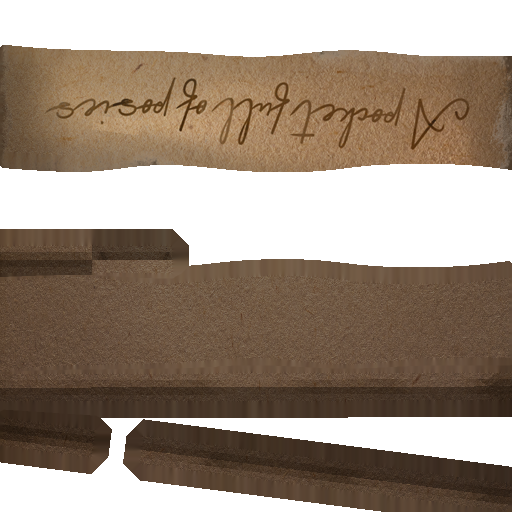 A pocket full of posies